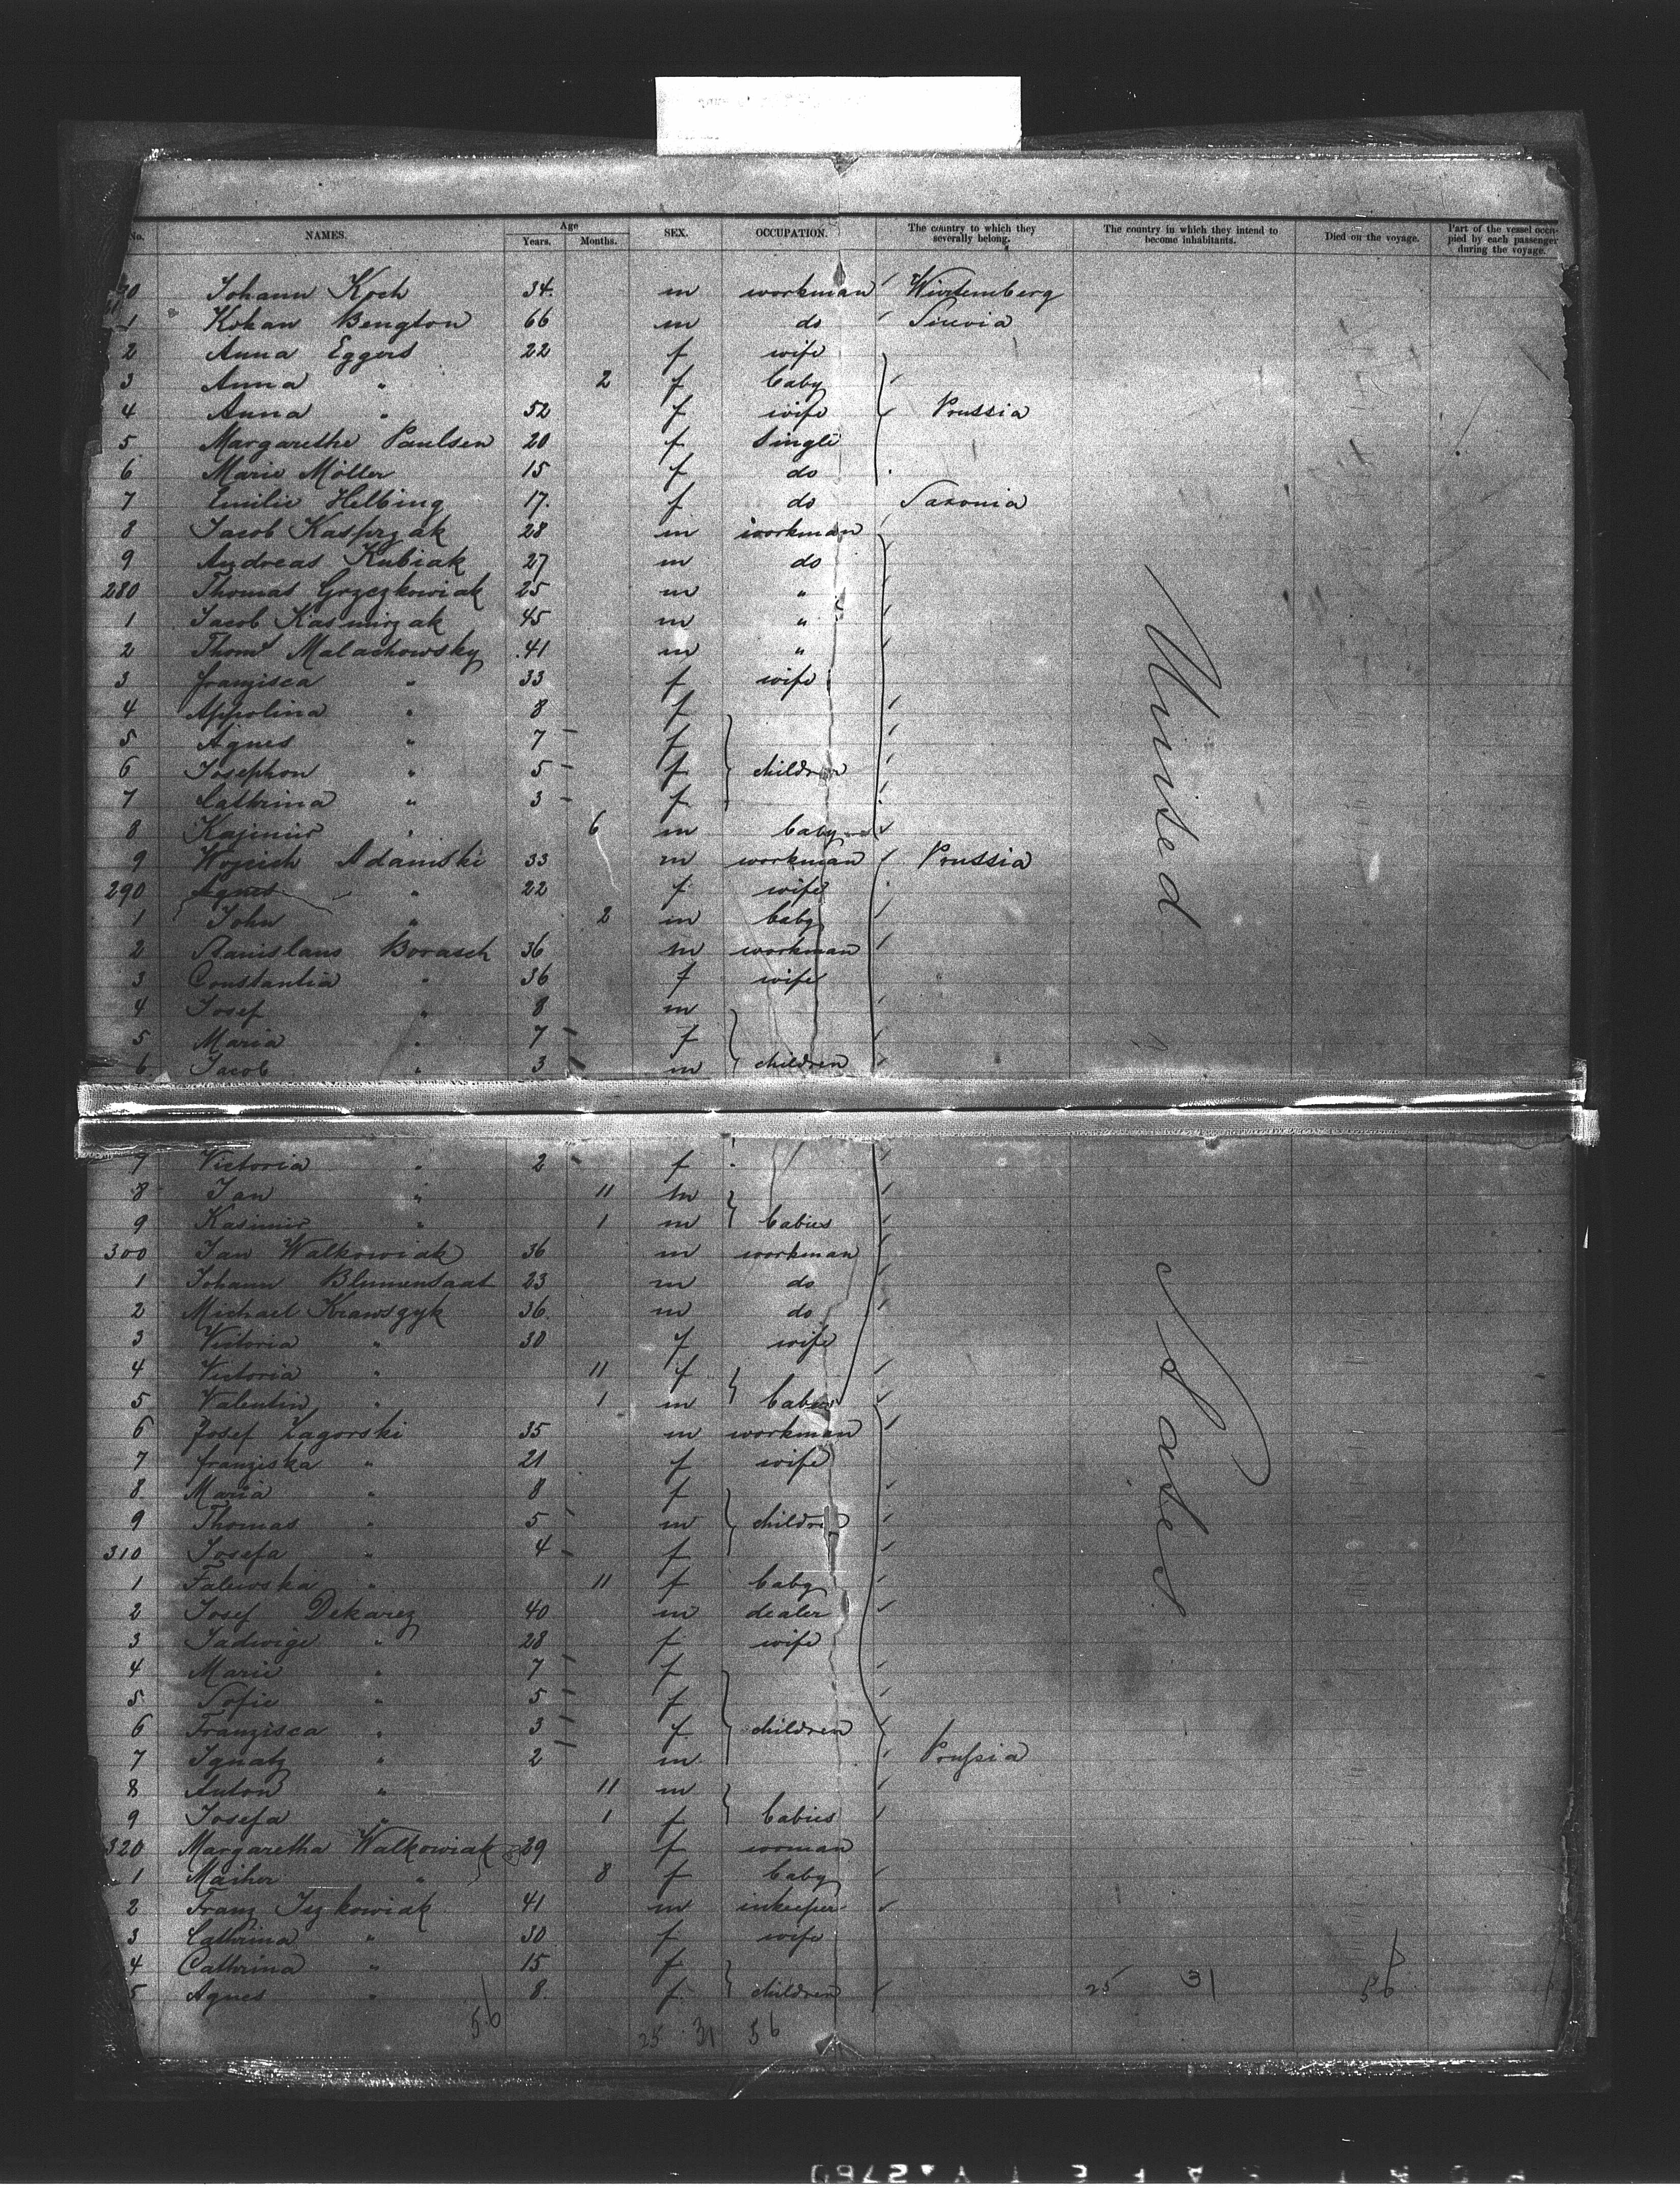 No. NAMES. Age Years. Months. SEX. OCCUPATION. The country to which they severally belong. The country in which they intend to become inhabitants. Died on the voyage. Part of the vessel occupied by each passenger during the voyage.
70 Johann Koch 34. m workman Wirtemberg
1 Kohan Bengton 66 m do
2 Anna Eggers 22 f wife
3 Anna " 2 f baby
4 Anna " 52 f wife Prussia
5 Margarethe Paulsen 20 f single
6 Marie Möller 15 f do
7 Emilie Helbing 17. f do Saxonia
8 Jacob Kasprzak 28 m workman
9 Andreas Kubiak 27 m do
280 Thomas Grzezkowiak 25 m "
1 Jacob Kasmirzak 45 m "
2 Thoms Malachowsky 41 m "
3 franzisca " 33 f wife
4 Appolina " 8 f
5 Agnes " 7 - f
6 Josephon " 5 - f children
7 Cathrina " 3 - f
8 Kajimir " 6 m baby
9 Wojcich Adamski 33 m workman Prussia
290 Agnes " 22 f wife
1 John " 2 m baby
2 Stanislaus Borasch 36 m workman
3 Constantia " 36 f wife
4 Josef " 8 m
5 Maria " 7 - f
6 Jacob " 3 - m children
7 Victoria " 2 - f
8 Jan " 11 m
9 Kasimir " 1 m babies
300 Jan Walkowiak 36 m workman
1 Johann Blumensaat 23 m do
2 Michael Krawszyk 36. m do
3 Victoria " 30 f wife
4 Victoria " 11 f
5 Valentin " 1 m babies
6 Josef Zagorski 35 m workman
7 franziska " 21 f wife
8 Maria " 8 f
9 Thomas " 5 - m children
310 Josefa " 4 - f
1 " 11 f baby
2 Josef Dekarez 40 m dealer
3 Jadwige " 28 f wife
4 Marie " 7 - f
5 Sofie " 5 - f
6 Franzisca " 3 - f children
7 Ignatz " 2 - m Prussia
8 Anton " 11 m
9 Josefa " 1 f babies
320 Margaretha Walkowiak 29 f woman
1 " 8 f baby
2 Franz Iszkowiak 41 m inkeeper
3 Cathrina " 30 f wife
4 Cathrina " 15 f
5 Agnes " 8. f children
United
States
25 31 56
56 25 31 56